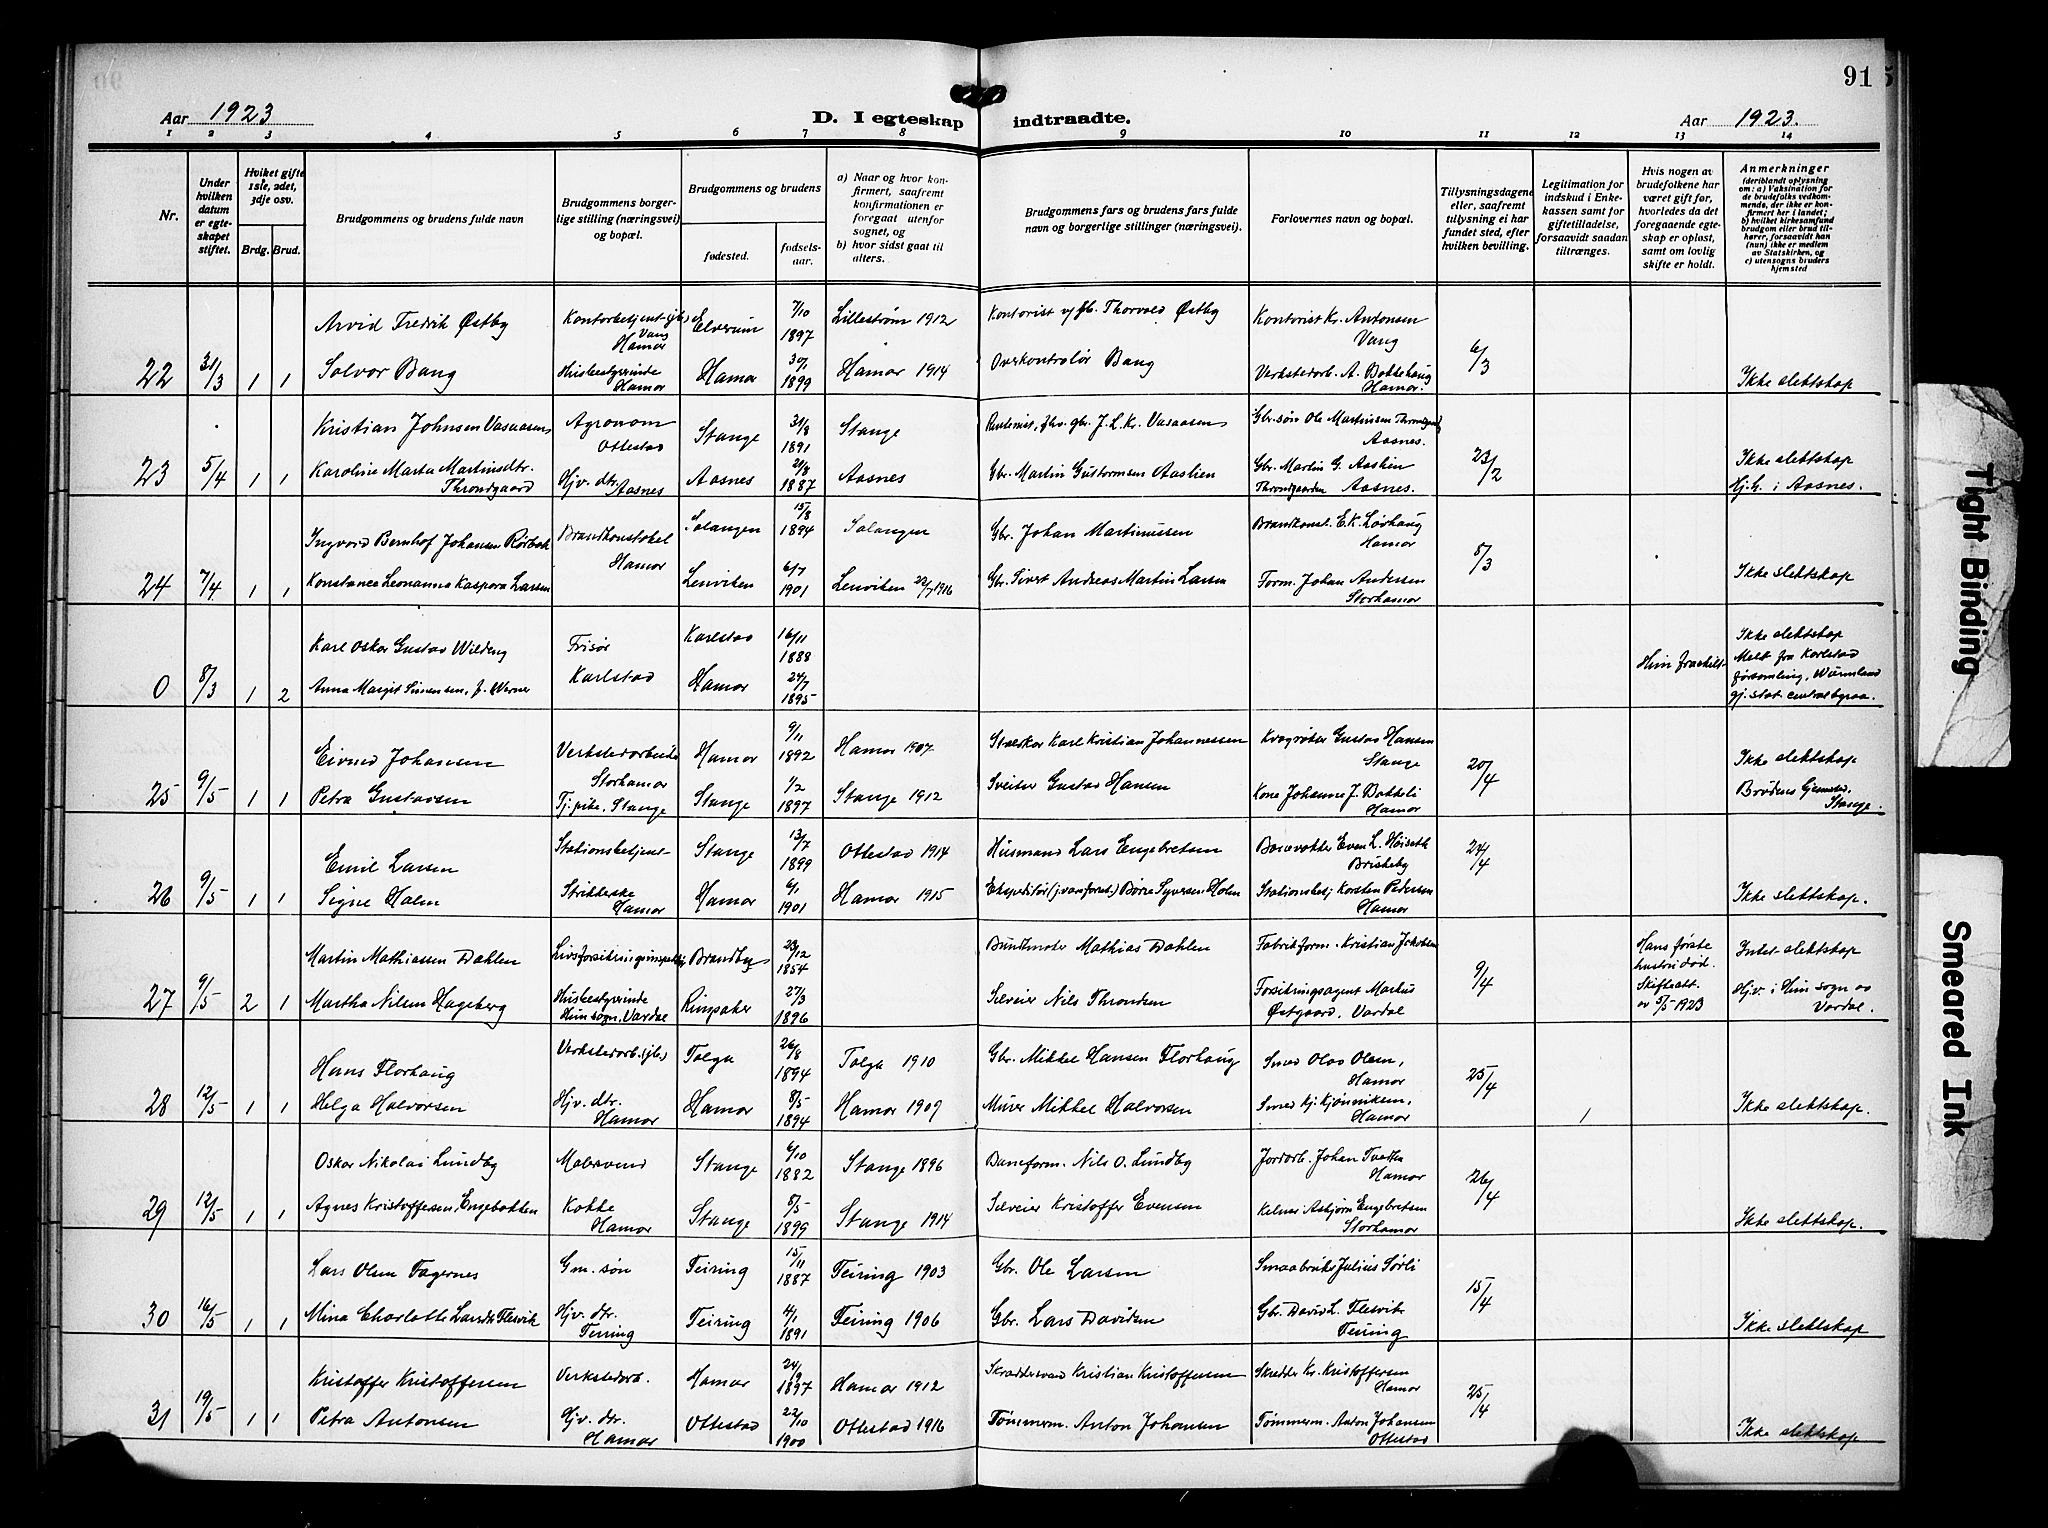 91
Aar 1923
D. I egteskap indtraadte.
Aar 1923.
1 2 3 4 5 6 7 8 9 10 11 12 13 14
Nr.
Under hvilken datum er egteskapet stiftet.
Hviket gifte 1ste, 2det, 3dje osv.
Brdg. Brud.
Brudgommens og brudens fulde navn
Brudgommens borgerlige stilling (næringsvei) og bopæl.
Brudgommens og brudens
fødested.
fødselsaar.
a) Naar og hvor konfirmert, saafremt konfirmationen er foregaat utenfor sognet, og
b) hvor sidst gaat til alters.
Brudgommens fars og brudens fars fulde navn og borgerlige stillinger (næringsvei).
Forlovernes navn og bopæl.
Tillysningsdagene eller, saafremt tillysning ei har fundet sted, efter hvilken bevilling.
Legitimation for indskud i Enkekassen samt for giftetilladelser, forsaavidt saadan tiltrænges.
Hvis nogen av brudefolkene har været gift før, hvorledes da det foregaaende egteskap er opløst, samt om lovlig skifte er holdt.
Anmerkninger
(deriblandt oplysning om: a) Vaksination for de brudefolks vedkommende, der ikke er konfirmert her i landet; b) hvilket kirkesamfund brudgom eller brud tilhører, forsaavidt han (hun) ikke er medlem av Statskirken, og c) utensogns bruders hjemsted
Arvid Fredrik Østby Kontorbetjent (jb.) Vang Hamar Elverum 7/10 1897 Lillestrøm 1912 Kontorist v/jb. Thorvald Østby Kontorist Kr. Antonsen Vang
22 31/3 1 1 Solvor Bang Husbestyrerinde Hamar Hamar 30/1 1899 Hamar 1914 Overkontrolør Bang Verkstedarb. A. Bakkehaug Hamar. 6/3 Ikke slektskap
Kristian Johnsen Vasaasen Agronom Ottestad Stange 31/8 1891 Stange gbr. J. L. Kr. Vasaasen Gbr. søn Ole Martinsen Throndgaard Aasnes.
23 5/4 1 1 Karoline Marta Martinsdtr. Throndgaard Hjv. dtr. Aasnes Aasnes 21/8 1887 Aasnes Gbr. Martin Guttormsen Aaslien Gbr. Martin G. Aaslien Throndgaarden Aasnes. 23/2 Ikke slektskap Hj.h. i Aasnes.
Ingvard Bernhof Johansen Rørbak Brandkonstabel Hamar Salangen 15/8 1894 Salangen Gbr. Johan Martinussen Brandkonst. E. K. Løvhaug Hamar
24 7/4 1 1 Konstance Leonanna Kaspara Larsen Lenviken 6/7 1901 Lenviken 22/7 1916 Gbr. Sivert Andreas Martin Larsen Form. Johan Andersen Storhamar 8/3 Ikke slektskap
Karl Oskar Gustav Wildeng Frisør Karlstad Karlstad 16/11 1888
0 8/3 1 2 Anna Margit Simensen, f. Werner Hamar 24/7 1895 Hun fraskilt Ikke slektskap Melt fra Karlstad församling, Wärmland gj. stat. centralbyraa.
Eivind Johansen Verkstedarbeider Storhamar Hamar 9/11 1892 Hamar 1907 Staller Karl Kristian Johannessen Gustav Hansen Stange
25 9/5 1 1 Petra Gustavsen Tj.pike, Stange Stange 1/2 1897 Stange 1912 Sveiser Gustav Hansen Kone Johanne J. Bakkeli Hamar 20/4 Ikke slektskap Brudens hjemsted, Stange.
Emil Larsen Stationsbetjent Stange 13/7 1899 Ottestad 1914 Husmand Lars Engebretsen Banevokter Even L. Høiseth Briskeby 24/4
26 9/5 1 1 Signe Holm Strikkerske Hamar Hamar 6/1 1901 Hamar 1915 Ekspeditør (jernbanest.) Børre Syversen Holm Stationsbetj. Karsten Pedersen Hamar Ikke slektskap.
Martin Mathiassen Dahlen Livsforsikringsinspektør Brandbu 23/12 1854 Buntmaker Mathias Dahlen Fabrikform. Kristian Jakobsen Hans første hustru død. Skifteatt. av 5/5 1923 Intet slektskap
27 9/5 2 1 Martha Nilsen Hageberg Husbestyrerinde Hunsogn, Vardal Ringsaker 27/3 1896 Selveier Nils Throndsen Forsikringsagent Markus Østgaard, Vardal 9/4 Hjv. i Hun sogn av Vardal.
Hans Florhaug Verkstedarb. (jb.) Tolga 26/8 1894 Tolga 1910 Gbr. Mikkel Hansen Florhaug Smed Olav Olsen, Hamar
28 12/5 1 1 Helga Halvorsen Hjv. dtr. Hamar Hamar 8/5 1894 Hamar 1909 Murer Mikkel Halvorsen Smed Kj. Kjønniksen, Hamar 25/4 1 Ikke slektskap.
Oskar Nikolai Lundby Malersvend Stange 6/10 1882 Stange 1896 Baneform. Nils O. Lundby Jordarb. Johan Tveter Hamar
29 12/5 1 1 Agnes Kristoffersen, Engebakken Kokke Hamar Stange 8/5 1899 Stange 1914 Selveier Kristoffer Evensen Kelner Asbjørn Engebretsen Storhamar 26/4 Ikke slektskap.
Lars Olsen Fagernes Gm. søn Feiring 15/11 1887 Feiring 1903 Gbr. Ole Larsen Smaabruks Julius Sørli
30 16/5 1 1 Mina Charlotte Larsdtr. Flesvik Hjv. dtr. Feiring Feiring 4/1 1891 Feiring 1906 Gbr. Lars Davidsen Gbr. David L. Flesvik Feiring 15/4 Ikke slektskap
Kristoffer Kristoffersen Verkstedarb. Hamar 24/9 1897 Hamar 1912 Skræddersvend Kristian Kristoffersen Skrædder Kr. Kristoffersen Hamar
31 19/5 1 1 Petra Antonsen Hjv. dtr. Hamar Ottestad 22/10 1900 Ottestad 1916 Tømmerm. Anton Johansen Tømmerm. Anton Johansen Ottestad 25/4 Ikke slektskap
Tight Binding
Smeared Ink